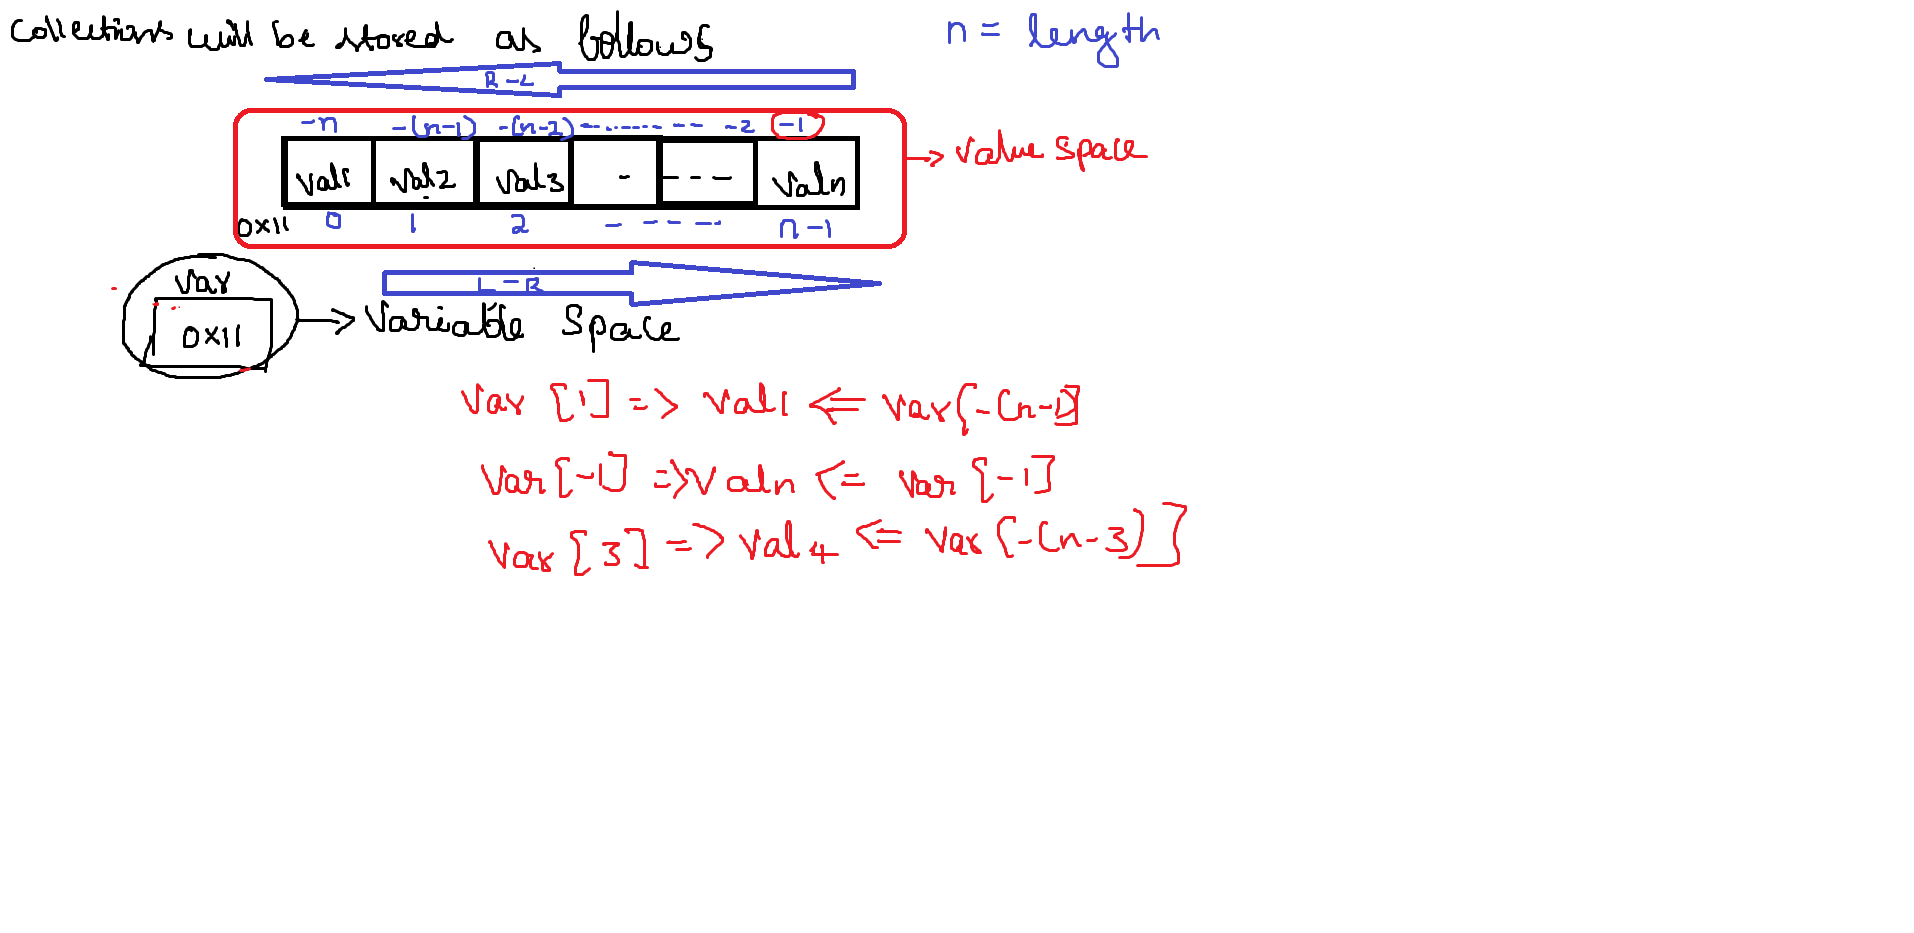 Collections will be stored as follows
n = length
R-L
-n -(n-1) -(n-2) --------- -2 -1
val1 val2 val3 - --- valn
→ Value Space
0x11 0 1 2 - ---- n-1
Var
L-R
0x11 → Variable Space
Var [1] => val1 <= var[-(n-1)]
Var[-1] => Valn <= Var [-1]
Var [3] => Val4 <= Var [-(n-3)]